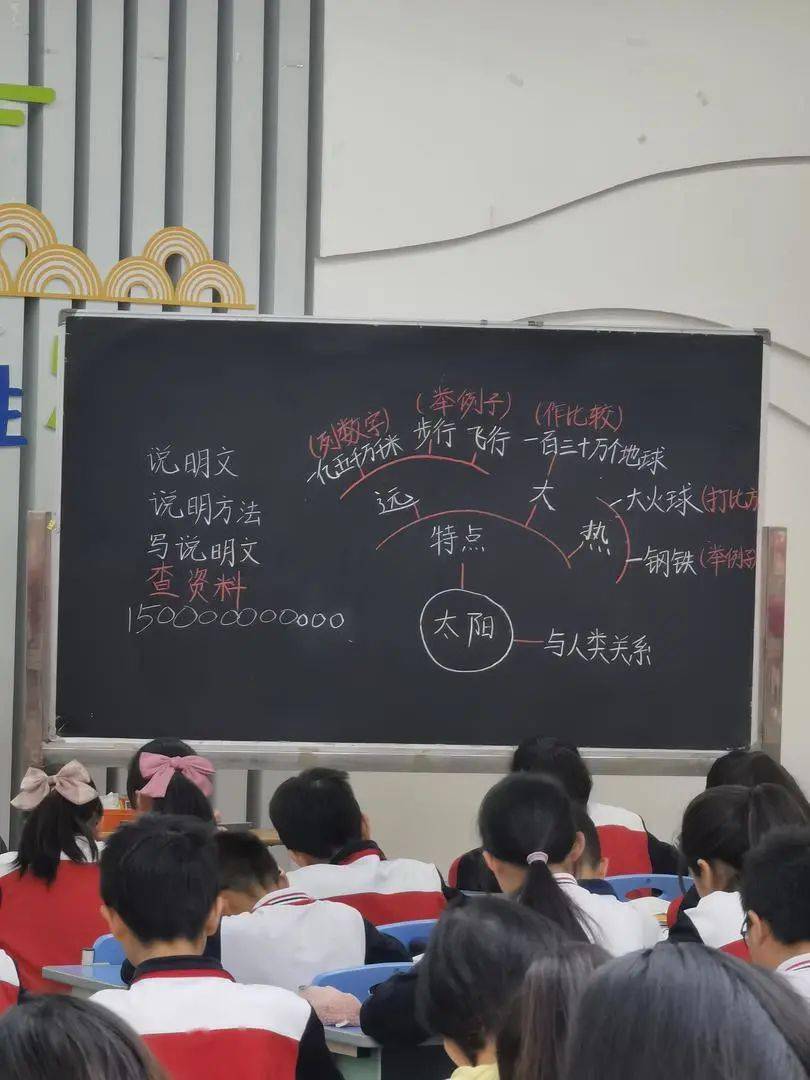 说明文
说明方法
写说明文
查资料
150000000000
(列数字) (举例子) (作比较)
一亿五千万千米 步行 飞行 一百三十万个地球
远 大 热
大火球(打比方
钢铁(举例子
特点
太阳
与人类关系